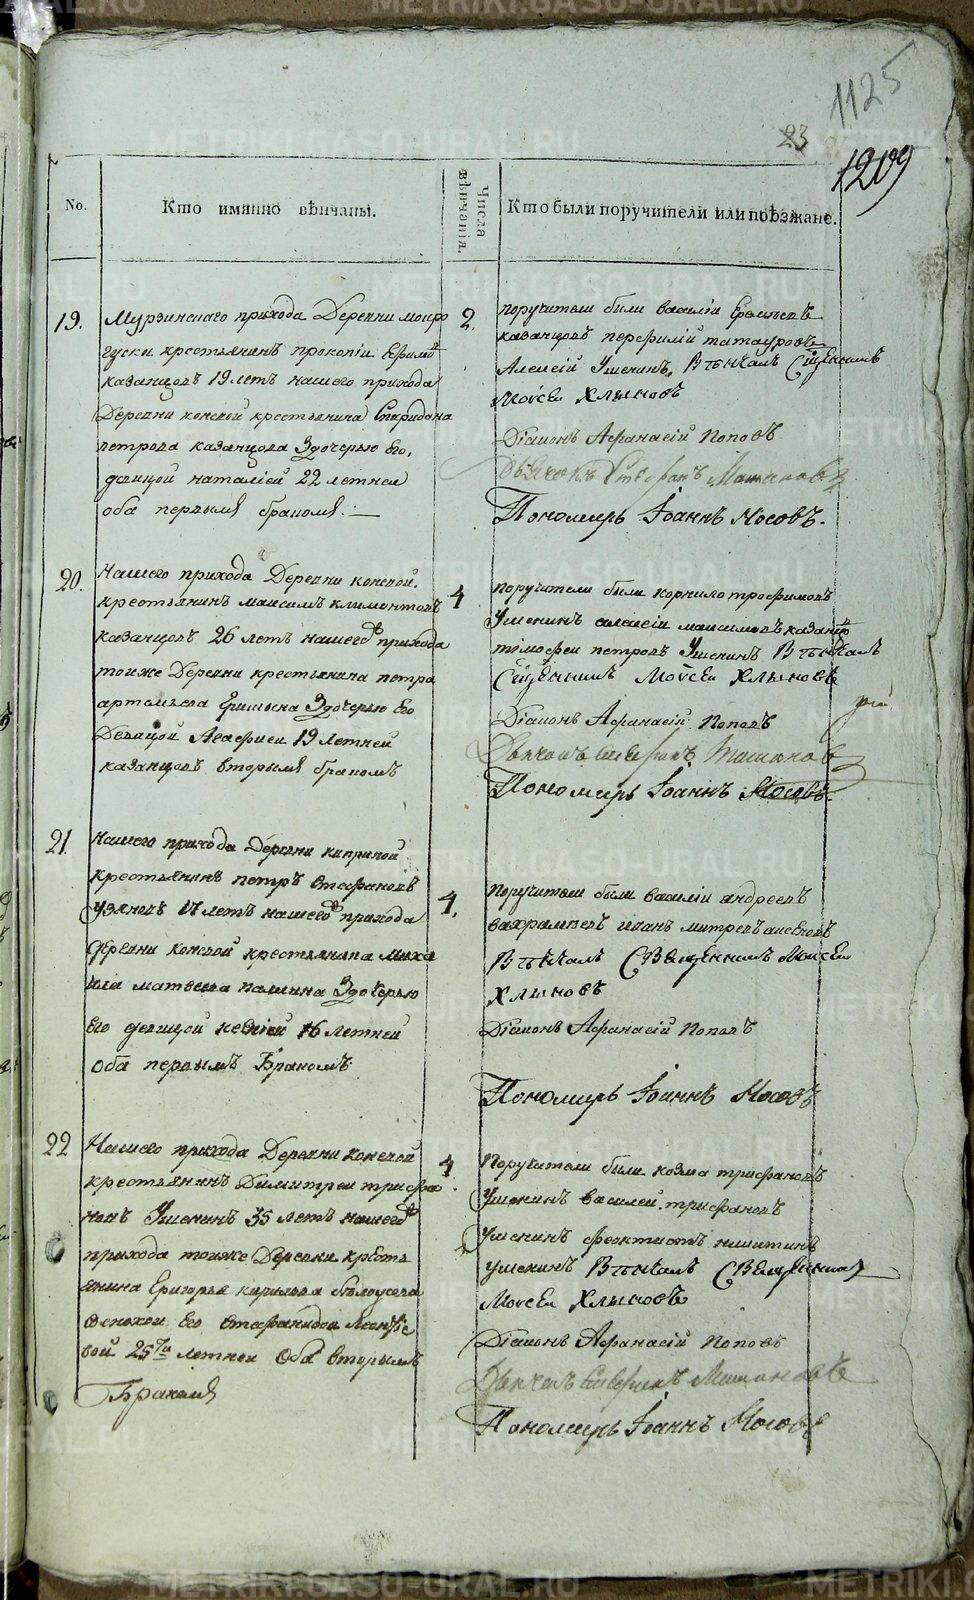 1125
23
1209
No.
Кто имянно вѣнчаны.
Числа вѣнчанія.
Кто были поручители или поѣзжане.
19.
Мурзинскаго прихода Деревни мокро
гуски крестьянинъ прокопіи Ефимо
казанцовъ 19 летъ нашего прихода
Деревни конской крестьянина Спиридона
петрова казанцова Здочерью его,
девицой наталіей 22 летней
оба первымя бракомя.
2.
поручители были василіи
казанцовъ перфилій татауровъ
Алексій Ушенинъ, Втѣкалъ Сщенникъ
Мойсеи Хлыновъ
Діаконъ Афанасій Поповъ
Пономарь Іоаннъ Носовъ.
20.
Нашего прихода Деревни конской.
крестьянинъ максимъ климонтовъ
казанцовъ 26 летъ нашего прихода
тоиже Деревни крестьянина петра
артемьева Здочерью его
Девицой Агафией 19 летней
казанцовъ вторымя бракомъ
4
поручители были корнило трофимовъ
Ушенинъ алексіи максимовъ казанцо
тимофеи петровъ Ушенинъ Втѣкалъ
Сщенникъ Мойсеи Хлыновъ
Діаконъ Афанасій Поповъ
Пономарь Іоаннъ Носовъ.
21.
Нашего прихода Деревни киприной
крестьянинъ петръ стефановъ
17 летъ нашего прихода
деревни конской крестьянина миха
ила матвеева Здочерью
его девицой 16 летней
оба первымъ Бракомъ
4.
поручители были василіи андреевъ
вахрамеевъ иванъ митревъ аксеновъ
Втѣкалъ Священникъ Мойсеи
Хлыновъ
Діаконъ Афанасій Поповъ
Пономарь Іоаннъ Носовъ
22
Нашего прихода Деревни конской
крестьянинъ Димитреи трифа
новъ Ушенинъ 35 летъ нашего
прихода тоиже Деревни кресть
янина Григорья кирилова белоусова
его стефанидои
вой 25ти летней оба вторымъ
Бракомя
4.
Поручители были козма трифановъ
Ушенинъ василеи трифановъ
Ушенинъ феоктистъ никитинъ
ушенинъ Втѣкалъ Священникъ
Мойсеи Хлыновъ
Діаконъ Афанасій Поповъ
Пономарь Іоаннъ Носовъ
METRIKI.GASO-URAL.RU